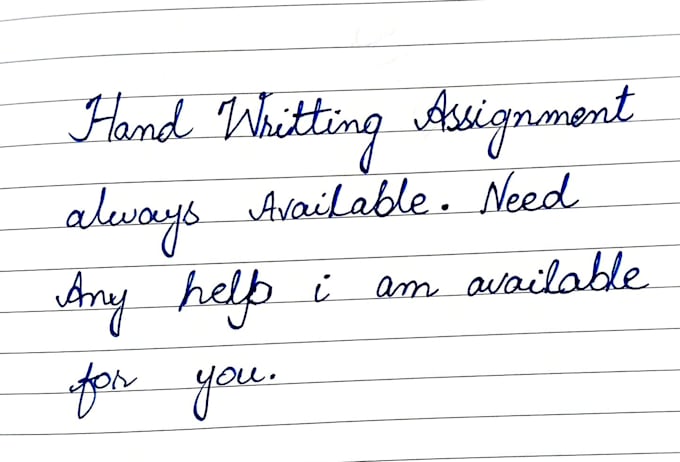 Hand Writting Assignment
always Available. Need
Any help i am available
for you.